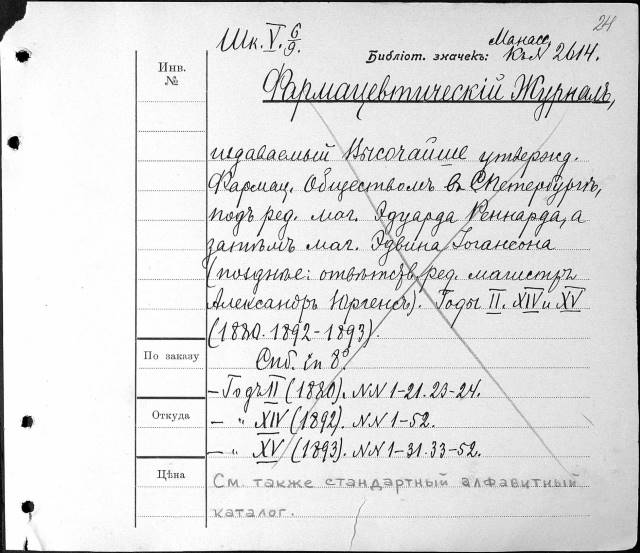 24
Шк. V. 6/9.
Манасс.
Библіот. значекъ: КъN 2614.
Инв.
№
Фармацевтическій Журналъ,
издаваемый Высочайше утвержд.
Фармац. Обществомъ въ СПетербургѣ,
подъ ред. маг. Эдуарда Реннарда, а
затѣмъ маг. Эдвина Іогансона
(позднѣе: отвѣтств. ред. магистръ
Александръ Юргенсъ). Годы II. XIV и XV
(1880. 1892-1893).
По заказу
Спб. in 8º.
– Годъ II (1880). NN 1-21. 23-24.
Откуда
– " XIV (1892). NN 1-52.
– " XV (1893). NN 1-31. 33-52.
Цѣна
См. также стандартный алфавитный
каталог.